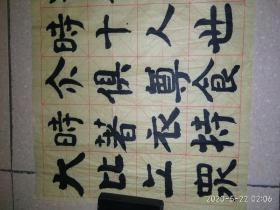 時十人世
尒俱尊食
時著衣持
大比丘眾
2020-6-22 02:06